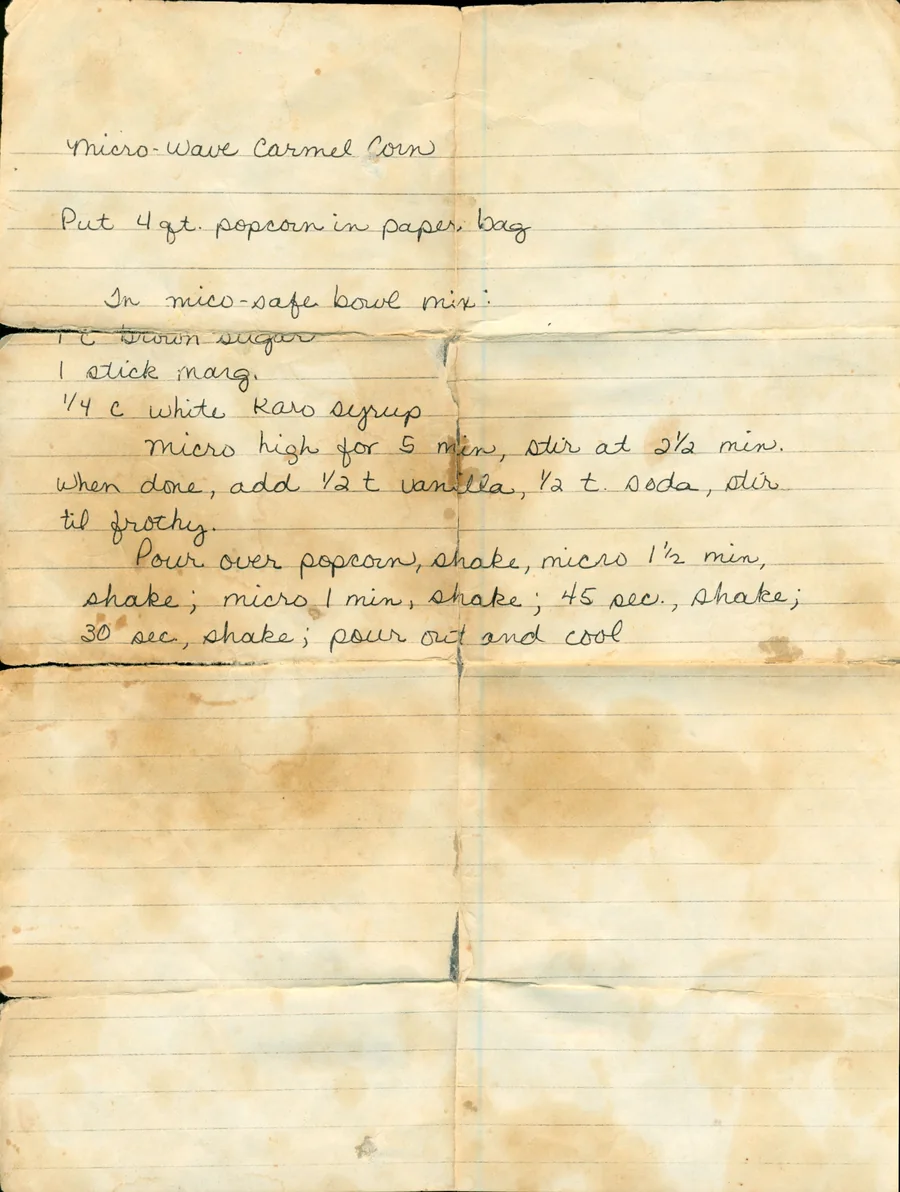 Micro-Wave Carmel Corn
Put 4 qt. popcorn in paper bag
In mico-safe bowl mix:
1 c brown sugar
1 stick marg.
1/4 c white Karo syrup
Micro high for 5 min, stir at 2 1/2 min.
When done, add 1/2 t vanilla, 1/2 t. soda, stir
til frothy.
Pour over popcorn, shake, micro 1 1/2 min,
shake; micro 1 min, shake; 45 sec., shake;
30 sec, shake; pour out and cool